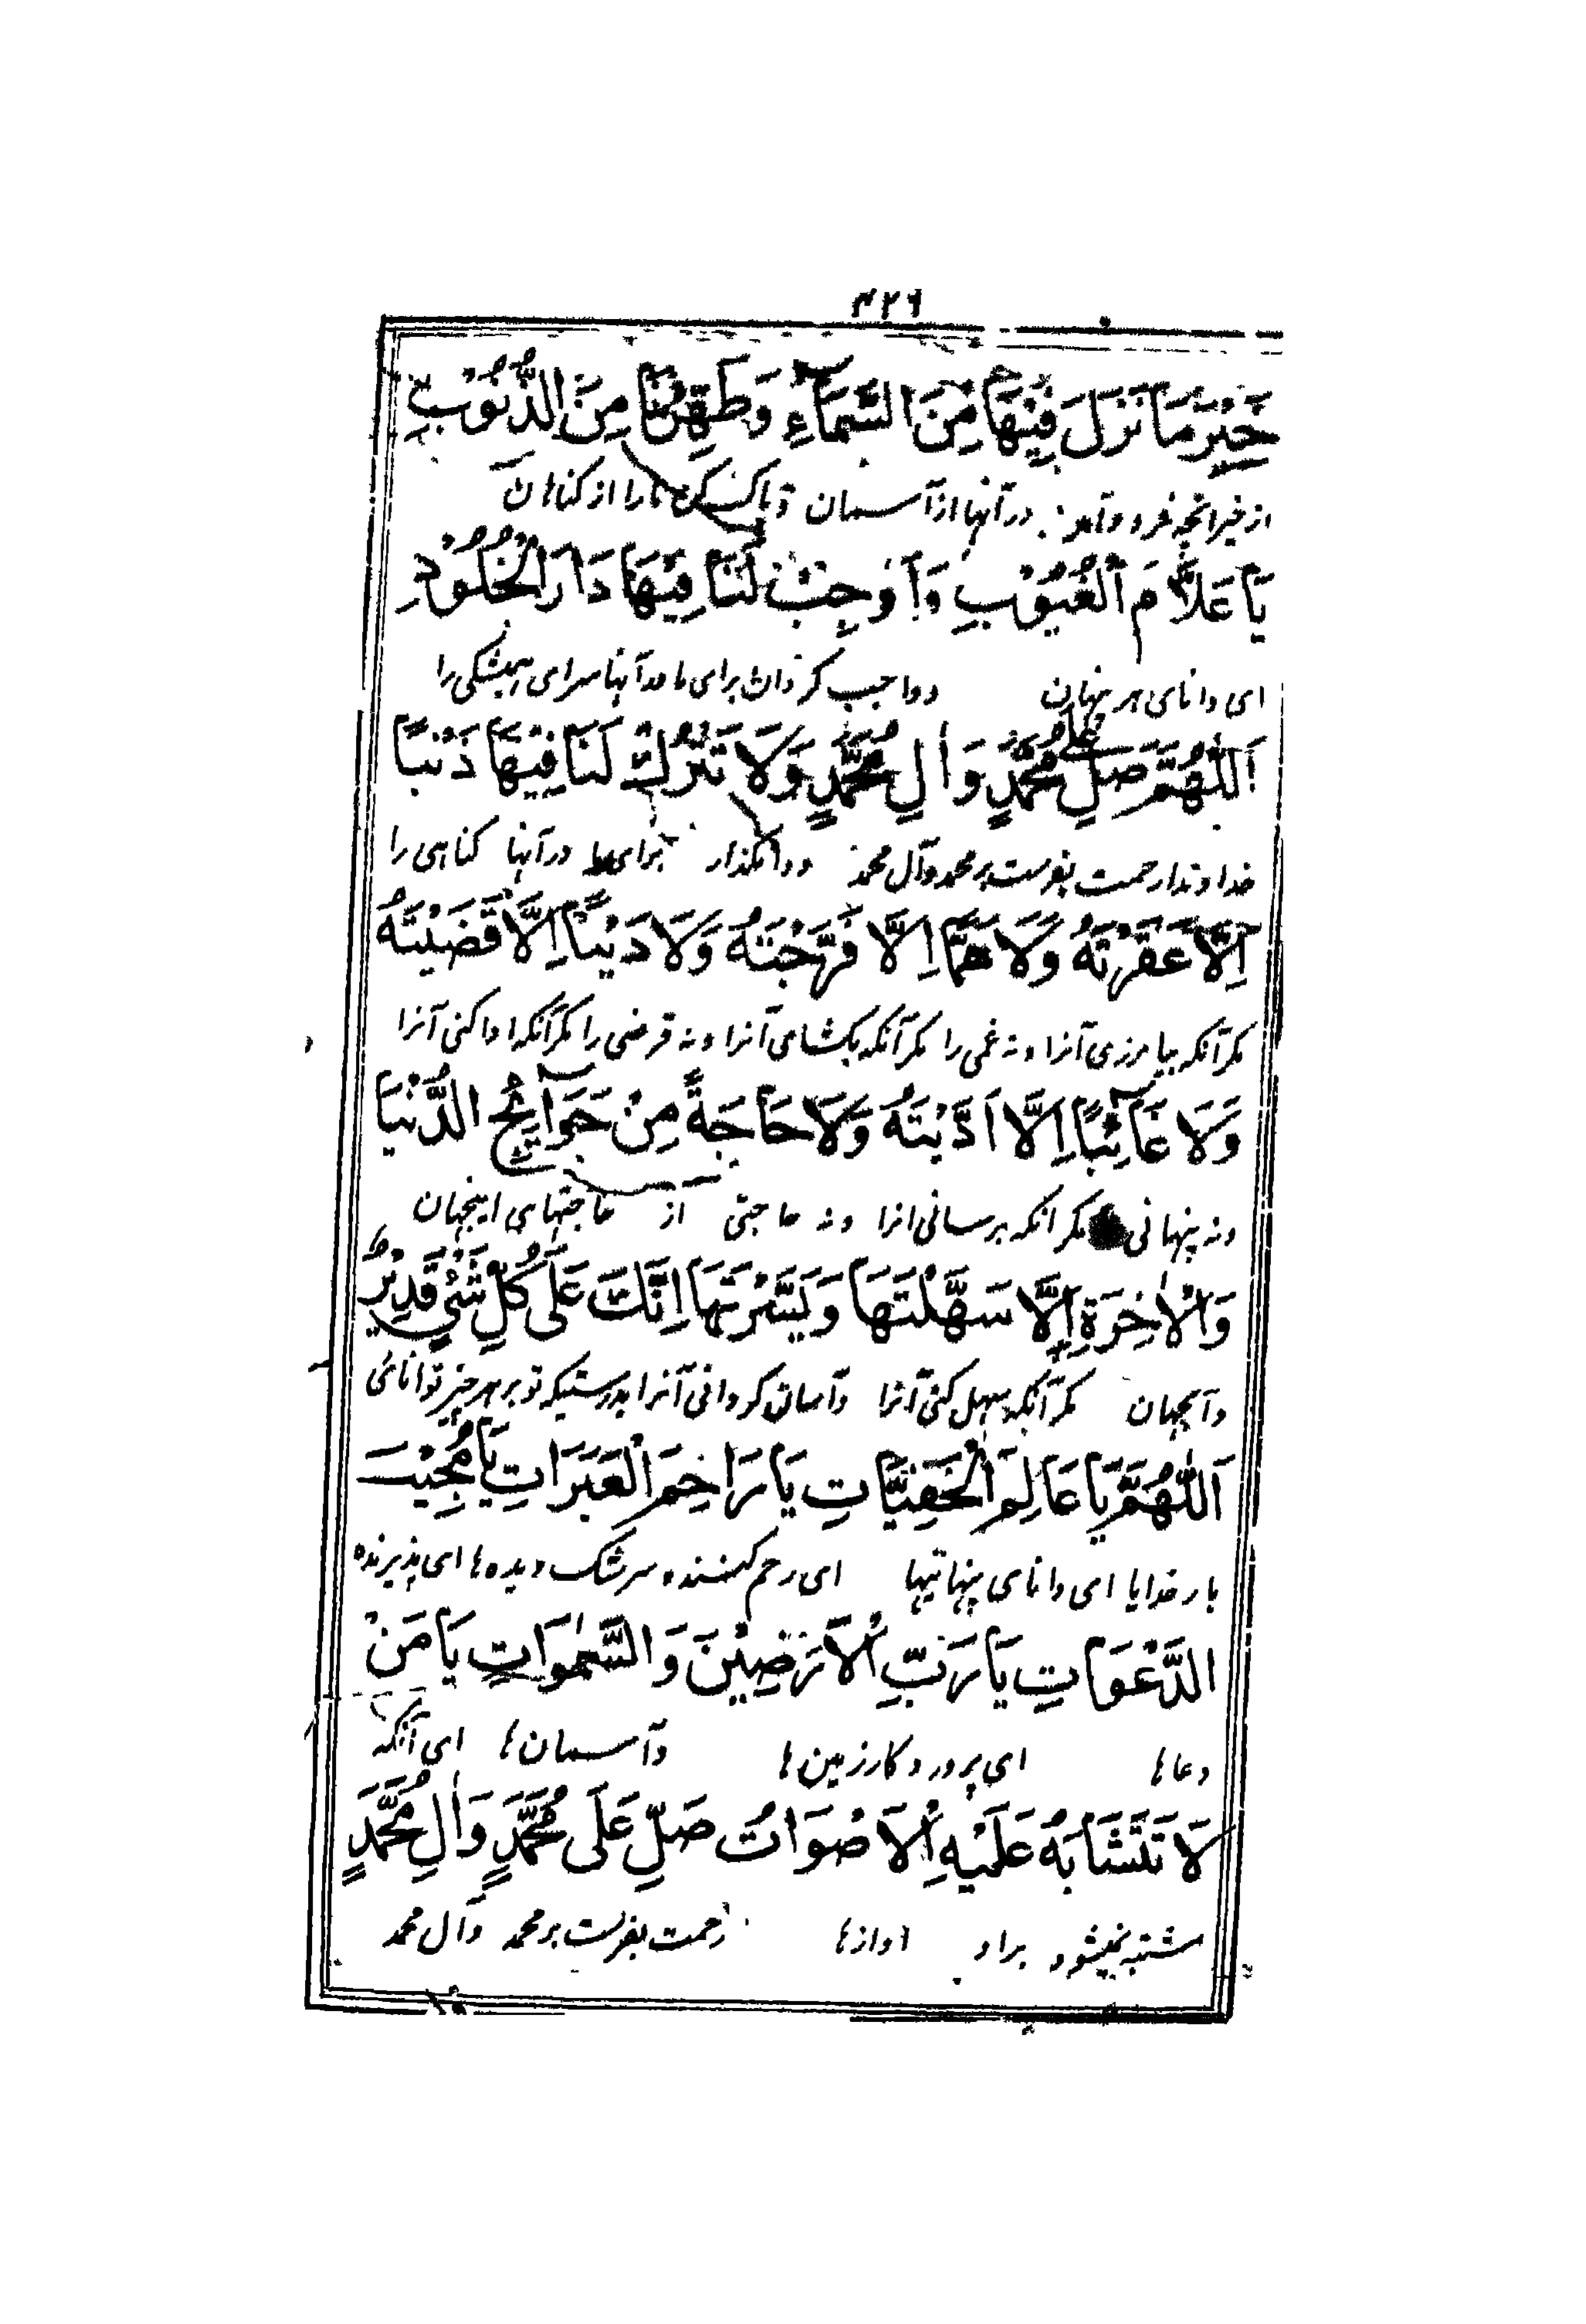 ۴۲۶
خَيْرَ مَا نَزَلَ فِيْهَا مِنَ السَّمَآءِ وَطَهِّرْنَا مِنَ الذُّنُوْبِ
از خیر انچه فرود آمد در آنها از آسمان و پاک کن ما را از کناهان
يَا عَلَّامَ الْغُيُوْبِ وَاَوْجِبْ لَنَا فِيْهَا دَارَ الْخُلُوْدِ
ای دانای هر نهان و واجب کردان برای ما در آنها سرای همیشکی را
اَللّٰهُمَّ صَلِّ عَلٰى مُحَمَّدٍ وَاٰلِ مُحَمَّدٍ وَلَا تَتْرُكْ لَنَا فِيْهَا ذَنْبًا
خداوندا رحمت بفرست بر محمد و آل محمد و وامکذار برای ما در آنها کناهی را
اِلَّا غَفَرْتَهُ وَلَا هَمًّا اِلَّا فَرَّجْتَهُ وَلَا دَيْنًا اِلَّا قَضَيْتَهُ
مکر آنکه بیامرزی آنرا و نه غمی را مکر آنکه بکشای آنرا و نه قرضی را مکر آنکه ادا کنی آنرا
وَلَا غَآئِبًا اِلَّا اَدَّيْتَهُ وَلَا حَاجَةً مِنْ حَوَآئِجِ الدُّنْيَا
و نه پنهانی مکر انکه برسانی انرا و نه حاجتی از حاجتهای اینجهان
وَالْاٰخِرَةِ اِلَّا سَهَّلْتَهَا وَيَسَّرْتَهَا اِنَّكَ عَلٰى كُلِّ شَيْءٍ قَدِيْرٌ ط
و آنجهان مکر آنکه سهل کنی آنرا و آسان کردانی آنرا بدرستیکه تو بر هر چیز توانائی
اَللّٰهُمَّ يَا عَالِمَ الْخَفِيَّاتِ يَا رَاحِمَ الْعَبَرَاتِ يَا مُجِيْبَ
بار خدایا ای دانای پنهانیها ای رحم کننده سرشک دیده ها ای پذیرنده
الدَّعَوَاتِ يَا رَبِّ الْاَرَضِيْنَ وَالسَّمٰوَاتِ يَا مَنْ
دعاها ای پروردکار زمین ها و آسمان ها ای آنکه
لَا تَتَشَابَهُ عَلَيْهِ الْاَصْوَاتُ صَلِّ عَلَى مُحَمَّدٍ وَاٰلِ مُحَمَّدٍ
مشتبه نمیشود بر او آوازها رحمت بفرست بر محمد و آل محمد